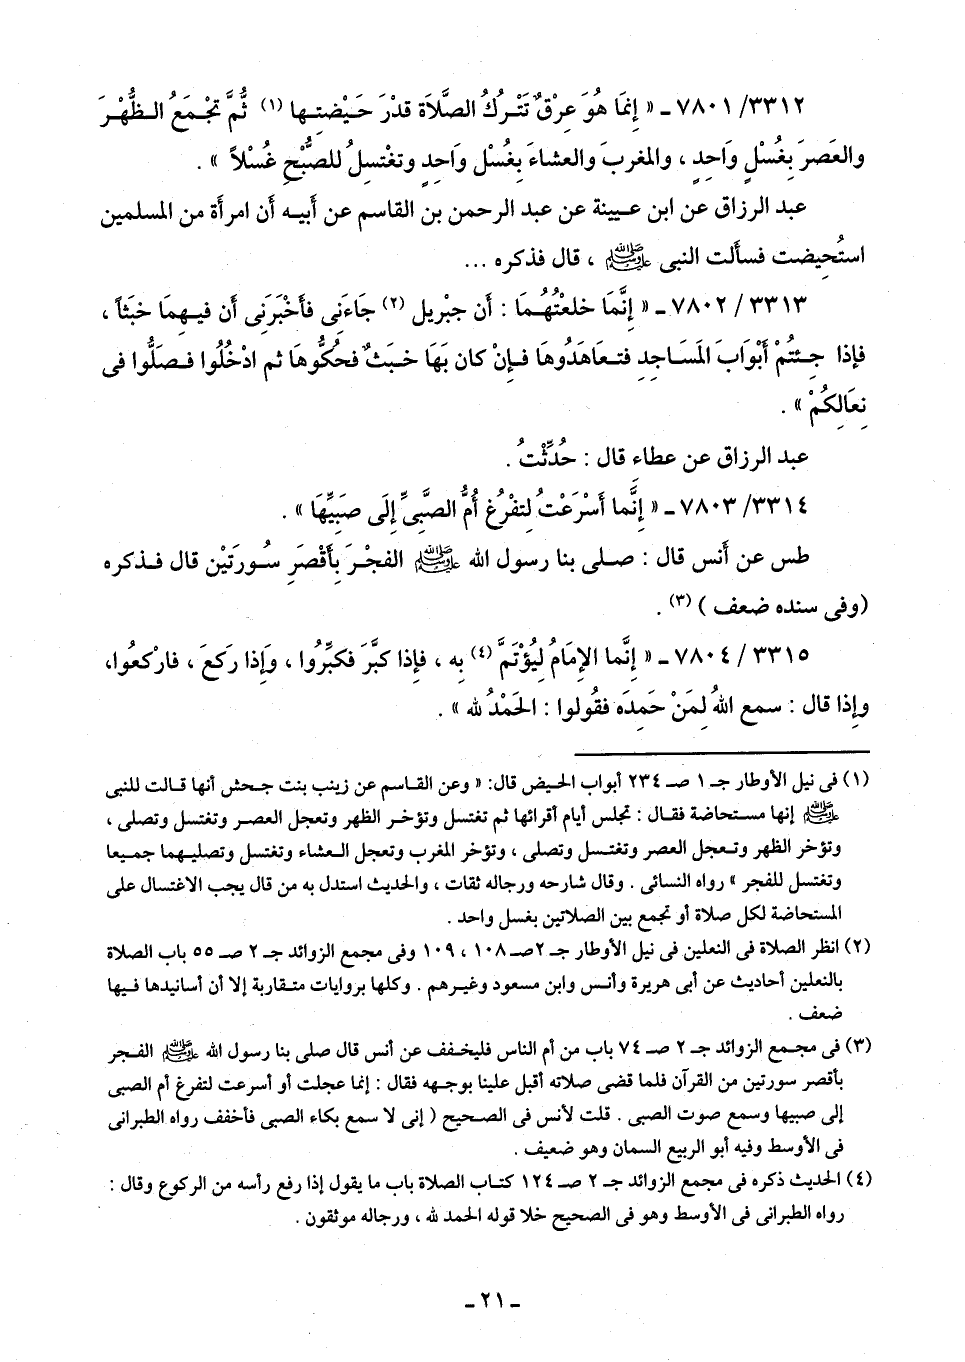 ٣٣١٢/ ٧٨٠١ ـ « إِنَّمَا هُوَ عِرْقٌ تَتْرُكُ الصَّلَاةَ قدْرَ حَيْضتِـها (١) ثُمَّ تَجْمَعُ الـظُّهْرَ
والعَصرَ بِغُسْلٍ وَاحِدٍ ، والمغرِبَ والعشاءَ بِغُسْل وَاحِدٍ وتغْتسلُ للصُّبْحِ غُسْلاً » .
عبد الرزاق عن ابن عـيينة عن عبد الرحمن بن القاسم عن أبيـه أن امرأة من المسلمين
استُحيضت فسألت النبى ﷺ ، قال فذكره ...
٣٣١٣ / ٧٨٠٢ ـ « إِنَّمَا خلعْتُهُمَا : أن جبْريل (٢) جَاءَنِى فأَخْبَرَنِى أن فيـهِمَا خبَثاً ،
فإذا جـِئتُمْ أَبْوَابَ المَسَـاجِدِ فتـعَاهَدُوهَا فـإِنْ كان بَهَا خـبَثٌ فحُكُّوهَا ثم ادْخُلُوا فـصَلُّوا فى
نِعَالِكُمْ » .
عبد الرزاق عن عطاء قال : حُدِّثْتُ .
٣٣١٤/ ٧٨٠٣ ـ « إِنَّما أَسْرَعْتُ لتفْرُغ أُمُّ الصَّبِىِّ إِلَى صَبِيِّهَا » .
طس عن أنس قال : صـلى بنا رسول الله ﷺ الفجْرَ بأَقْصَرِ سُـورَتَيْن قال فـذكره
(وفى سنده ضعف ) (٣) .
٣٣١٥/ ٧٨٠٤ ـ « إِنَّما الإِمَامُ لِيُؤْتَمَّ (٤) به ، فإذا كبَّرَ فكبِّرُوا ، وَإذا ركَعَ ، فارْكعُوا،
وإذا قال : سمع اللهُ لمَنْ حَمِدَه فقُولوا : الحَمْدُ لله » .
(١) فى نيل الأوطار جـ ١ صـ ٢٣٤ أبواب الحيض قال: « وعن القـاسم عن زينب بنت جـحش أنها قـالت للنبى
ﷺ إنها مسـتحاضة فقـال : تجلس أيام أقرائها ثم تغتسل وتؤخـر الظهر وتعجل العصـر وتغتسل وتصلى ،
وتؤخر الظهر وتـعجل العصر وتغتـسل وتصلى ، وتؤخر المغرب وتعجل الـعشاء وتغتسل وتصليـهما جميعا
وتغتسل للفجر » رواه النسائى . وقال شارحه ورجاله ثقات ، والحديث استدل به من قال يجب الاغتسال على
المستحاضة لكل صلاة أو تجمع بين الصلاتين بغسل واحد .
(٢) انظر الصلاة فى النعلين فى نيل الأوطار جـ ٢صـ ١٠٨ ، ١٠٩ وفى مجمع الزوائد جـ ٢ صـ ٥٥ باب الصلاة
بالنعلين أحاديث عن أبى هريرة وأنس وابن مسعود وغيرهم . وكلها بروايات متـقاربة إلا أن أسانيدها فـيها
ضعف .
(٣) فى مجـمع الزوائد جـ ٢ صـ ٧٤ باب من أم الناس فليخـفف عن أنس قال صلى بنا رسول الله ﷺ الفـجر
بأقصر سورتين من القرآن فلما قضى صلاته أقبل علينا بوجـهه فقال : إنما عجلت أو أسرعت لتفرغ أم الصبى
إلى صبيها وسمع صوت الصبى . قلت لأنس فى الصـحيح ( إنى لا سمع بكاء الصبى فأخفف رواه الطبرانى
فى الأوسط وفيه أبو الربيع السمان وهو ضعيف .
(٤) الحديث ذكره فى مجمع الزوائد جـ ٢ صـ ١٢٤ كتـاب الصلاة باب ما يقول إذا رفع رأسه من الركوع وقال :
رواه الطبرانى فى الأوسط وهو فى الصحيح خلا قوله الحمد لله ، ورجاله موثقون .
ـ ٢١ ـ